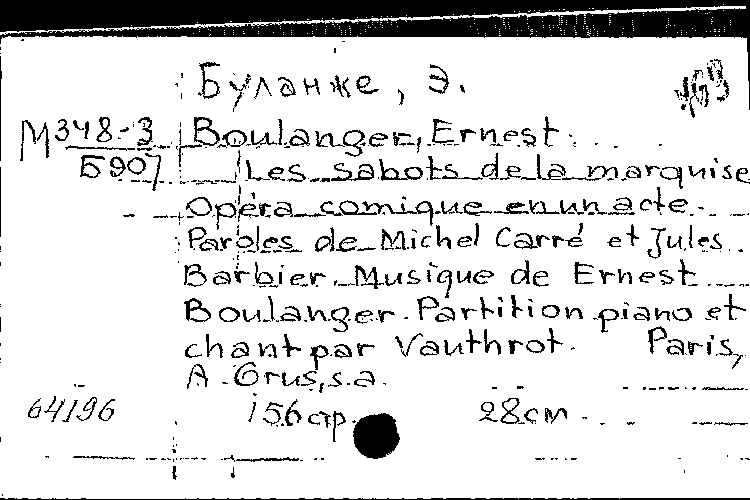 Буланже, Э.
463
М348-3
Б907
Boulanger, Ernest.
Les sabots de la marquise
Opéra comique en un acte.
Paroles de Michel Carré et Jules
Barbier. Musique de Ernest
Boulanger. Partition piano et
chant par Vauthrot. Paris,
A. Grus, s.a.
64196 156 стр. 28 см